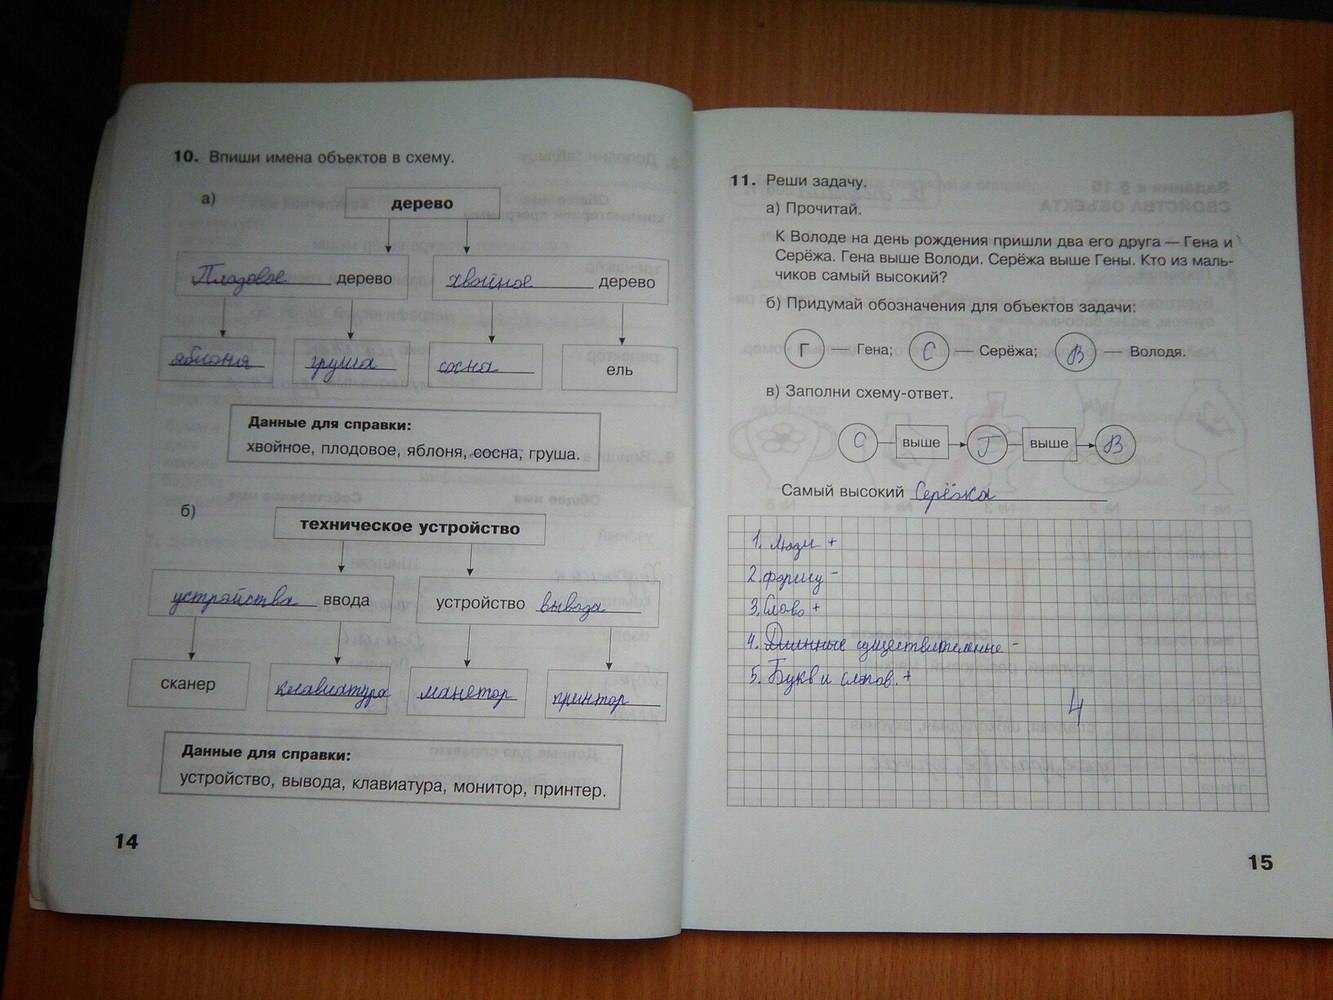 10. Впиши имена объектов в схему.
а)
дерево
Плодовое дерево
хвойное дерево
яблоня
груша
сосна
ель
Данные для справки:
хвойное, плодовое, яблоня, сосна, груша.
б)
техническое устройство
устройства ввода
устройство вывода
сканер
клавиатура
манетор
принтор
Данные для справки:
устройство, вывода, клавиатура, монитор, принтер.
14
11. Реши задачу.
а) Прочитай.
К Володе на день рождения пришли два его друга — Гена и
Серёжа. Гена выше Володи. Серёжа выше Гены. Кто из маль-
чиков самый высокий?
б) Придумай обозначения для объектов задачи:
Г — Гена; С — Серёжа; В — Володя.
в) Заполни схему-ответ.
С выше Г выше В
Самый высокий Серёжа
1. Люди +
2. форму -
3. Слово +
4. Длинные существительные -
5. Букв и слов. +
4
15